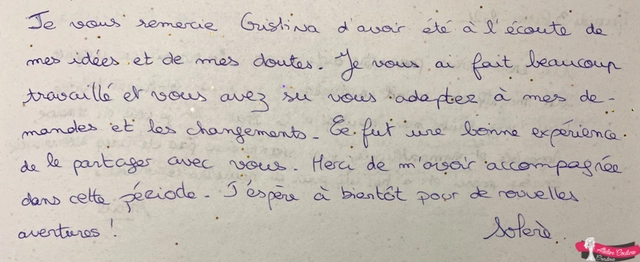 Je vous remercie Cristina d'avoir été à l'écoute de
mes idées et de mes doutes. Je vous ai fait beaucoup
travaillé et vous avez su vous adapter à mes de-
mandes et les changements. Ce fut une bonne expérience
de le partager avec vous. Merci de m'avoir accompagnée
dans cette période. J'espère à bientôt pour de nouvelles
aventures !